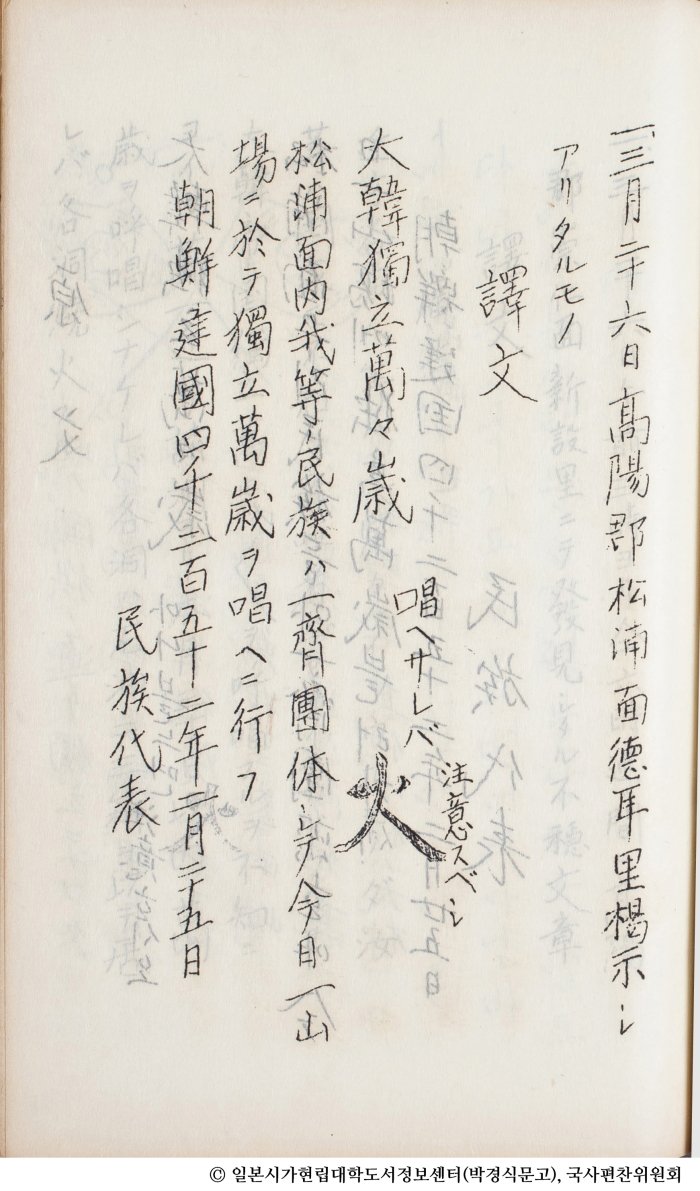 一、三月二十六日高陽郡松浦面德耳里揭示シ
アリタルモノ
譯文
大韓獨立萬々歲 唱ヘサレバ 火 注意スベシ
松浦面内我等ノ民族ハ一齊團体シテ今日一山
場ニ於テ獨立萬歲ヲ唱ヘニ行フ
朝鮮建國四千二百五十二年二月二十五日
民族代表
© 일본시가현립대학도서정보센터(박경식문고), 국사편찬위원회